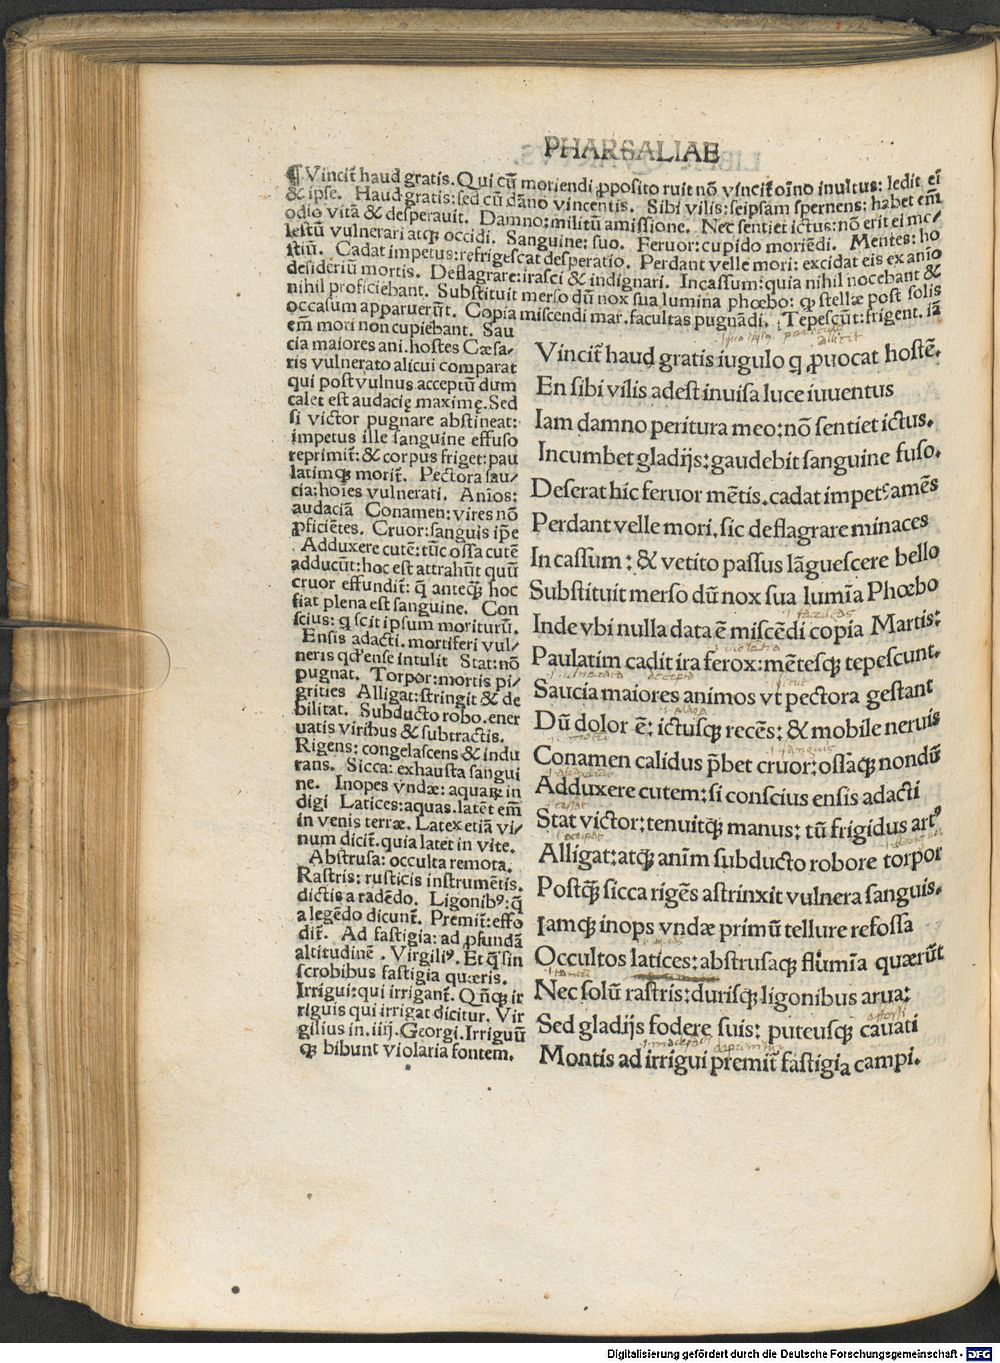 PHARSALIAE
¶ Vincit̄ haud gratis. Qui cū moriendi ꝓposito ruit nō vincit̄ oīno inultus: ledit eī
& ipse. Haud gratis: sed cū dāno vincentis. Sibi vilis: seipsam spernens: habet em̄
odio vitā & desperauit. Damno: militū amissione. Nec sentiet ictus: nō erit ei mo/
lestū vulnerari atqꝫ occidi. Sanguine: suo. Feruor: cupido moriēdi. Mentes: ho
stiū. Cadat impetus: refrigescat desperatio. Perdant velle mori: excidat eis ex anio
desideriū mortis. Deflagrare: irasci & indignari. Incassum: quia nihil nocebant &
nihil proficiebant. Substituit merso dū nox sua lumina phœbo: qꝫ stellæ post solis
occasum apparuerūt. Copia miscendi mar. facultas pugnādi. Tepescūt: frigent. iā
em̄ mori non cupiebant. Sau
cia maiores ani. hostes Cæsa-
ris vulnerato alicui comparat
qui post vulnus acceptū dum
calet est audacię maximę. Sed
si victor pugnare abstineat:
impetus ille sanguine effuso
reprimit̄: & corpus friget: pau
latimqꝫ morit̄. Pectora sau/
cia: hoīes vulnerati. Anios:
audaciā Conamen: vires nō
ꝓficiētes. Cruor: sanguis ip̄e
Adduxere cutē: tūc ossa cutē
adducūt: hoc est attrahūt quū
cruor effundit̄: q̄ anteqꝫ hoc
fiat plena est sanguine. Con
scius: q scit ipsum moriturū.
Ensis adacti. mortiferi vul/
neris qd̓ ense intulit Stat: nō
pugnat. Torpor: mortis pi/
grities Alligat: stringit & de
bilitat. Subducto robo. ener
uatis viribus & subtractis.
Rigens: congelascens & indu
rans. Sicca: exhausta sangui
ne. Inopes vndæ: aquaꝝ in
digi Latices: aquas. latēt em̄
in venis terræ. Latex etiā vi/
num dicit̄. quia latet in vite.
Abstrusa: occulta remota.
Rastris: rusticis instrumētis.
dictis a radēdo. Ligonibꝰ: q̄
a legēdo dicunt̄. Premit̄: effo
dit̄. Ad fastigia: ad ꝓfundā
altitudinē. Virgiliꝰ. Et q̄ sin
scrobibus fastigia quæris.
Irrigui: qui irrigant̄. Qn̄qꝫ ir
riguis qui irrigat dicitur. Vir
gilius in. iiij. Georgi. Irriguū
qꝫ bibunt violaria fontem.
Vincit̄ haud gratis iugulo q ꝓuocat hostē.
En sibi vilis adest inuisa luce iuuentus
Iam damno peritura meo: nō sentiet ictus.
Incumbet gladijs: gaudebit sanguine fuso.
Deserat hic feruor mētis. cadat impetꝰ amēs
Perdant velle mori. sic deflagrare minaces
In cassum: & vetito passus lāguescere bello
Substituit merso dū nox sua lumīa Phœbo
Inde vbi nulla data ē miscēdi copia Martis:
Paulatim cadit ira ferox: mētesqꝫ tepescunt.
Saucia maiores animos vt pectora gestant
Dū dolor ē: ictusqꝫ recēs: & mobile neruis
Conamen calidus p̄bet cruor: ossaqꝫ nondū
Adduxere cutem: si conscius ensis adacti
Stat victor: tenuitqꝫ manus: tū frigidus artꝰ
Alligat: atqꝫ anīm subducto robore torpor
Postqꝫ sicca rigēs astrinxit vulnera sanguis.
Iamqꝫ inops vndæ primū tellure refossa
Occultos latices: abstrusaqꝫ flumīa quærūt
Nec solū rastris: durisqꝫ ligonibus arua:
Sed gladijs fodere suis: puteusqꝫ cauati
Montis ad irrigui premit̄ fastigia campi.
Digitalisierung gefördert durch die Deutsche Forschungsgemeinschaft - DFG